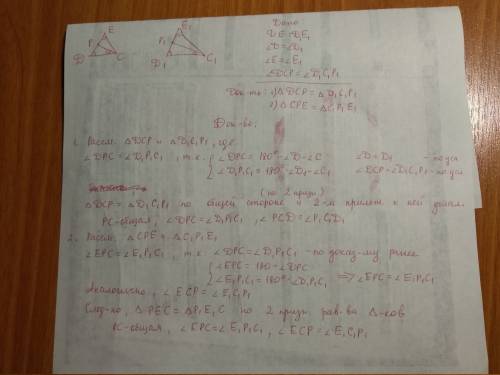 Дано
E
E₁
DE=D₁E₁
P
P₁
∠D=∠D₁
D
C
D₁
C₁
∠E=∠E₁
∠DCP=∠D₁C₁P₁
Док-ть: 1) △DCP=△D₁C₁P₁
2) △CPE=△C₁P₁E₁
Док-во:
1. Рассм. △DCP и △D₁C₁P₁, где
∠DPC=∠D₁P₁C₁, т.к. { ∠DPC=180°-∠D-∠C ∠D=∠D₁ - по усл
∠D₁P₁C₁=180°-∠D₁-∠C₁ ∠DCP=∠D₁C₁P₁ - по усл
(по 2 призн.)
△DCP=△D₁C₁P₁ по общей стороне и 2-м прилеж. к ней углам.
PC-общая, ∠DPC=∠D₁P₁C₁, ∠PCD=∠P₁C₁D₁
2. Рассм. △CPE и △C₁P₁E₁
∠EPC=∠E₁P₁C₁, т.к. ∠DPC=∠D₁P₁C₁ - по доказ-му ранее
{ ∠EPC=180-∠DPC
∠E₁P₁C₁=180°-∠D₁P₁C₁ => ∠EPC=∠E₁P₁C₁
Аналогично, ∠ECP=∠E₁C₁P₁
След-но, △PEC=△P₁E₁C по 2 призн. рав-ва △-ков
PC-общая, ∠EPC=∠E₁P₁C₁, ∠ECP=∠E₁C₁P₁